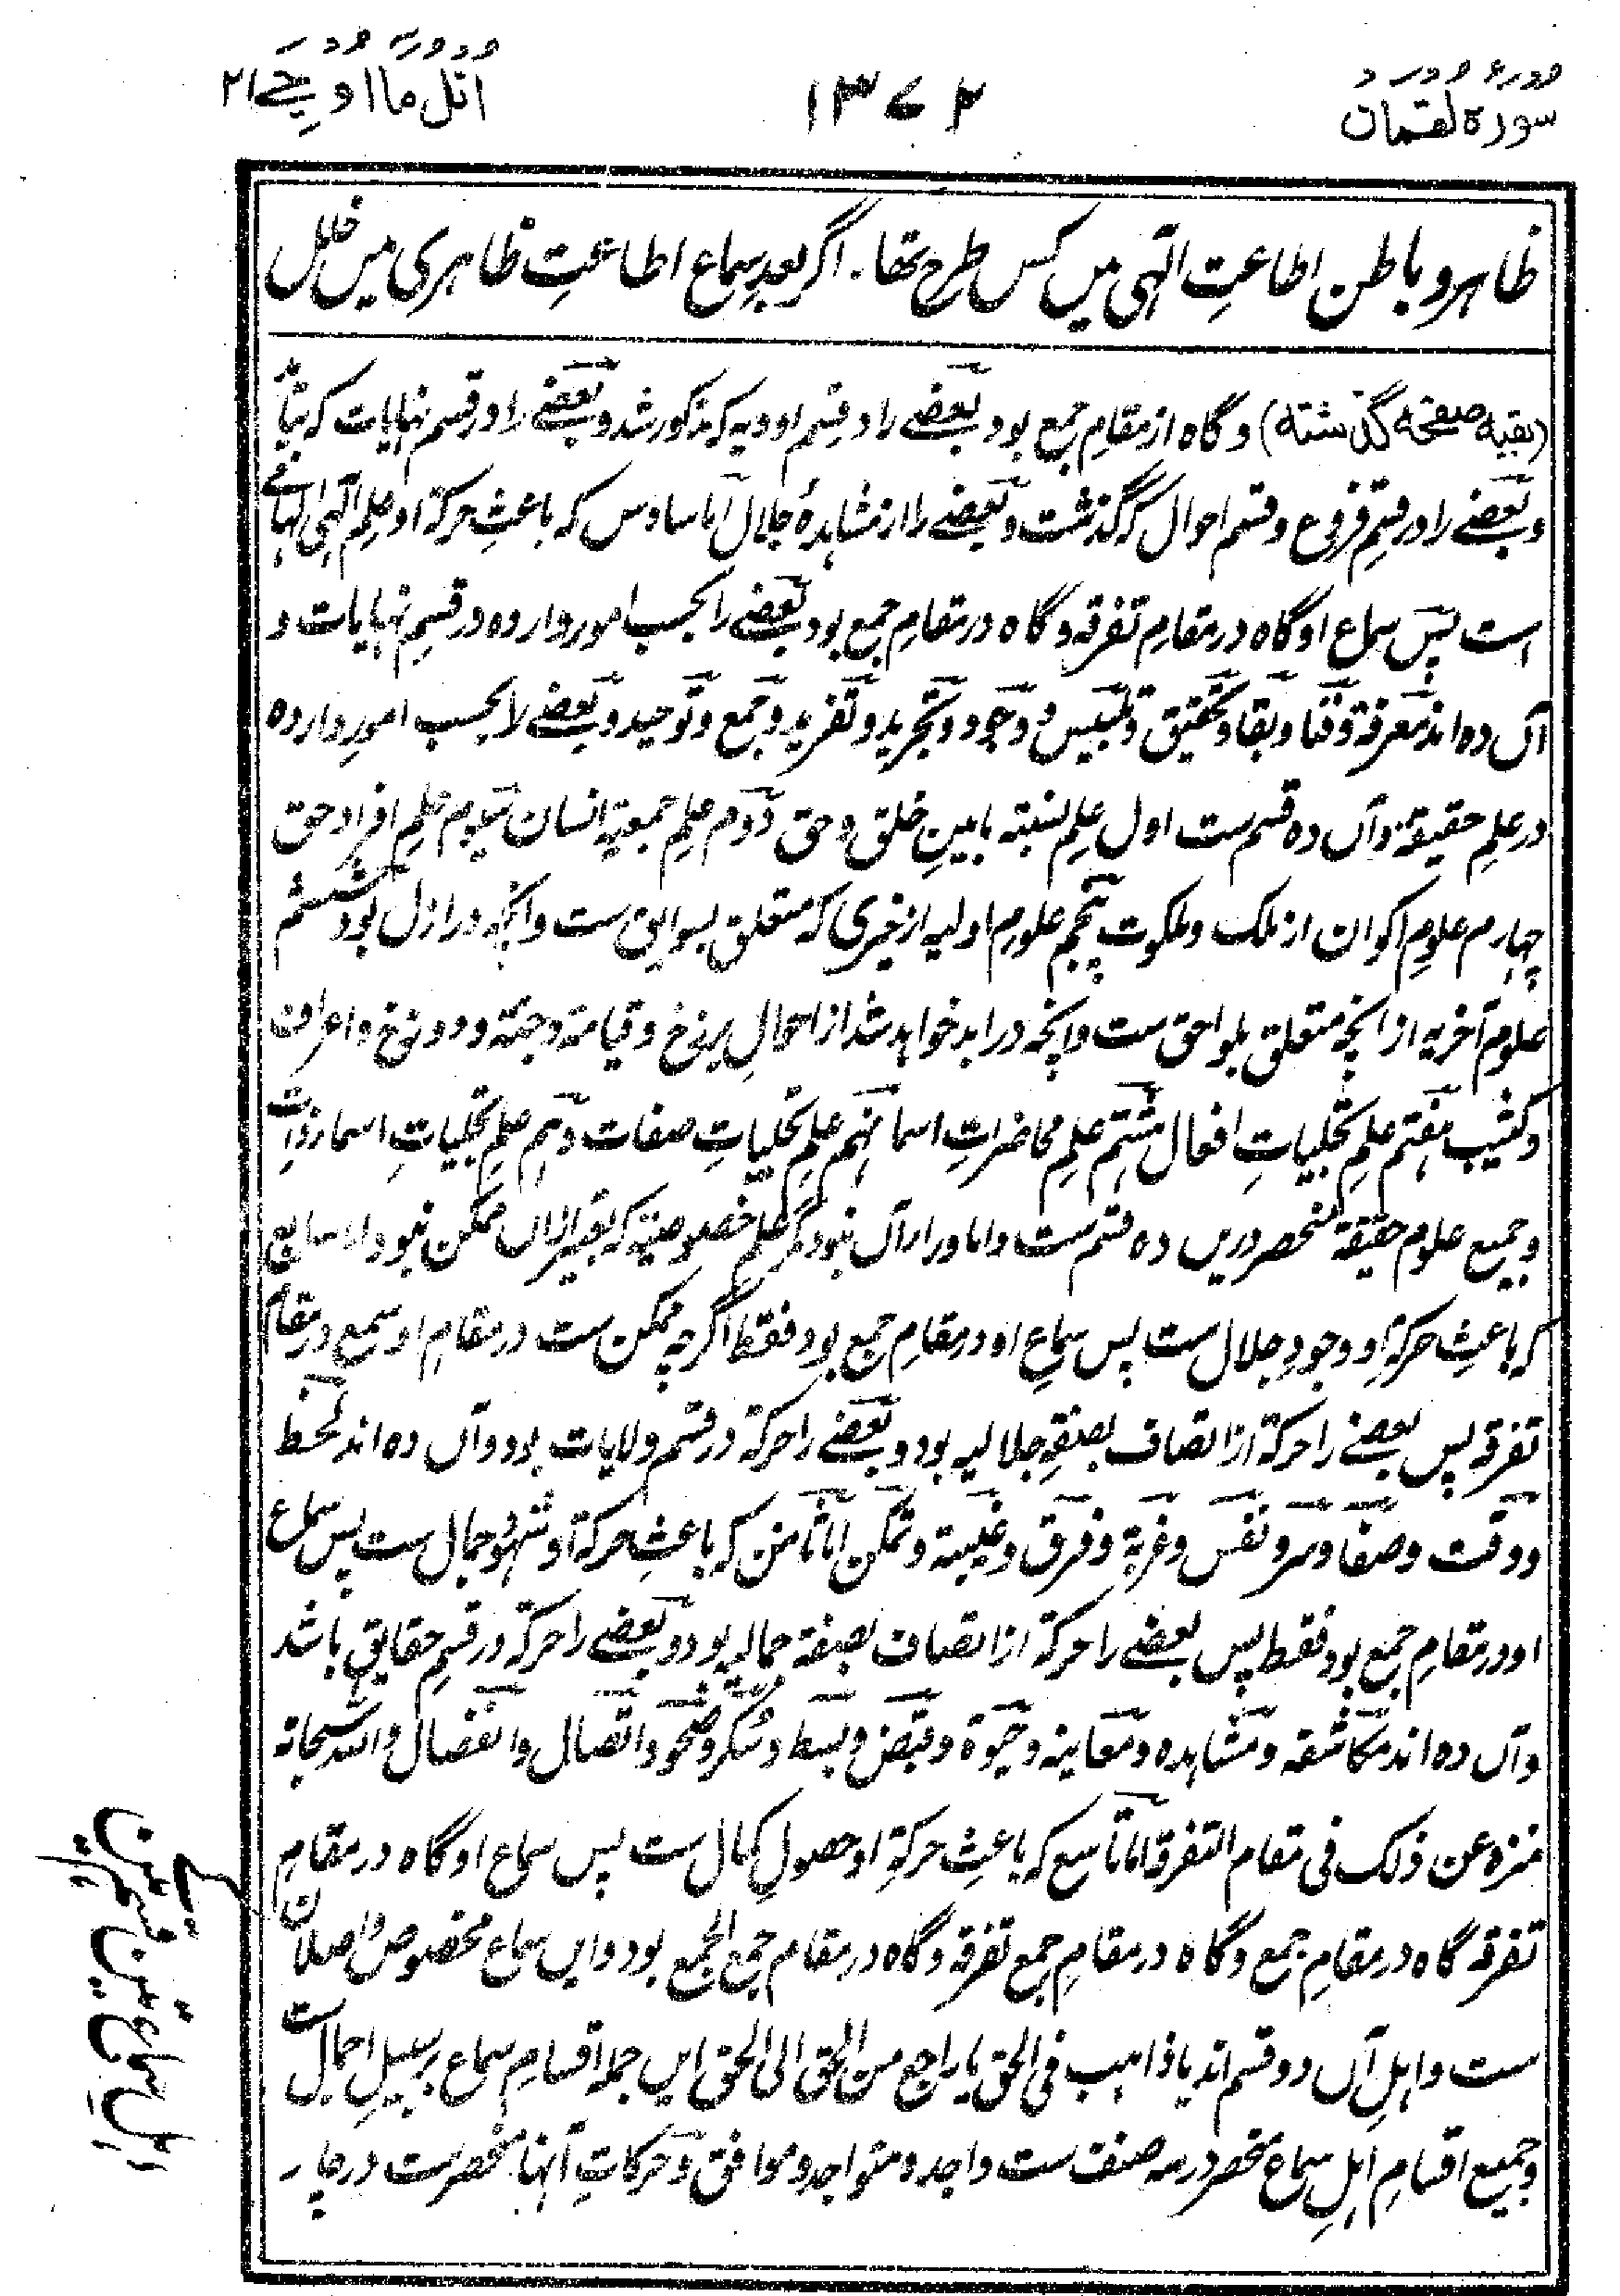 سورۃ لقمان
۱۳۷۲
اتل ما اوحی ۲۱
ظاہر و باطن اطاعتِ الٰہی میں کس طرح تھا۔ اگر بعدِ سماع اطاعتِ ظاہری میں خلل
(بقیہ صفحہ گذشتہ) و گاہ از مقامِ جمع بود بعضے را در قسم اودیہ کہ مذکور شد و بعضے را در قسم نہایات کہ بیاید
و بعضے را در قسمِ فروع و قسم احوال کہ گذشت و بعضے را از مشاہدۂ جلال اما سادس کہ باعثِ حرکۃ او علمِ الٰہی الہامے
است پس سماع او گاہ در مقامِ تفرقہ و گاہ در مقامِ جمع بود بعضے را بحسب امور واردہ در قسمِ نہایات و
آں دہ اند معرفۃ و فنا و بقا و تحقیق و تلبیس و وجود و تجرید و تفرید و جمع و توحید و بعضے را بحسب امورِ واردہ
در علمِ حقیقۃ و آں دہ قسم ست اول علمِ نسبتہ مابینِ خلق و حق دوم علمِ جمعیۃ انسان سیوم علمِ افراد حق
چہارم علومِ اکوان از ملک و ملکوت پنجم علومِ اولیہ از خبری کہ متعلق بسوابق ست و انچہ در ازل بود ششم
علوم آخریہ از انچہ متعلق بلواحق ست و انچہ در ابد خواہد شد از احوالِ برزخ و قیامۃ و جنتہ و دوزخ و اعراف
و کثیب ہفتم علمِ تجلیاتِ افعال ہشتم علمِ محاضراتِ اسما نہم علمِ تجلیاتِ صفات دہم علمِ تجلیاتِ اسماء ذات
و جمیع علوم حقیقۃ منحصر دریں دہ قسم ست و اما وراء آں نبود مگر علم خصوصیۃ کہ تعبیر ازاں ممکن نبود اما سابع
کہ باعثِ حرکۃ او وجودِ جلال ست پس سماعِ او در مقامِ جمع بود فقط اگرچہ ممکن ست در مقامِ او سمع در مقام
تفرقہ پس بعضے را حرکۃ از اتصاف بصفۃِ جلالیہ بود و بعضے را حرکۃ در قسم ولایات بود و آں دہ اند لحظ
و وقت و صفا و سر و نفس و غربۃ و فرق و غیبۃ و تمکن اما ثامن کہ باعثِ حرکۃ او شہودِ جمال ست پس سماع
او در مقامِ جمع بود فقط پس بعضے را حرکۃ از اتصاف بصفۃ جمالیہ بود و بعضے را حرکۃ در قسمِ حقایق باشد
و آں دہ اند مکاشفہ و مشاہدہ و معاینہ و حیٰوۃ و قبض و بسط و سُکر و صحو و اتصال و انفصال و اللہ سبحانہ
منزہ عن ذلک فی مقام التفرقۃ اما تاسع کہ باعثِ حرکۃِ او حصولِ کمال ست پس سماع او گاہ در مقامِ
تفرقہ گاہ در مقامِ جمع و گاہ در مقامِ جمع تفرقہ و گاہ در مقام جمع الجمع بود و ایں سماع مخصوص واصلان
ست و اہلِ آں دو قسم اند یا ذاہب فی الحق یا راجع من الحق الی الحق ایں جملہ اقسامِ سماع بر سبیلِ اجمال ست
و جمیع اقسامِ اہلِ سماع منحصر در سہ صنف ست واجد و متواجد و موافق و حرکاتِ آنہا منحصر ست در چار